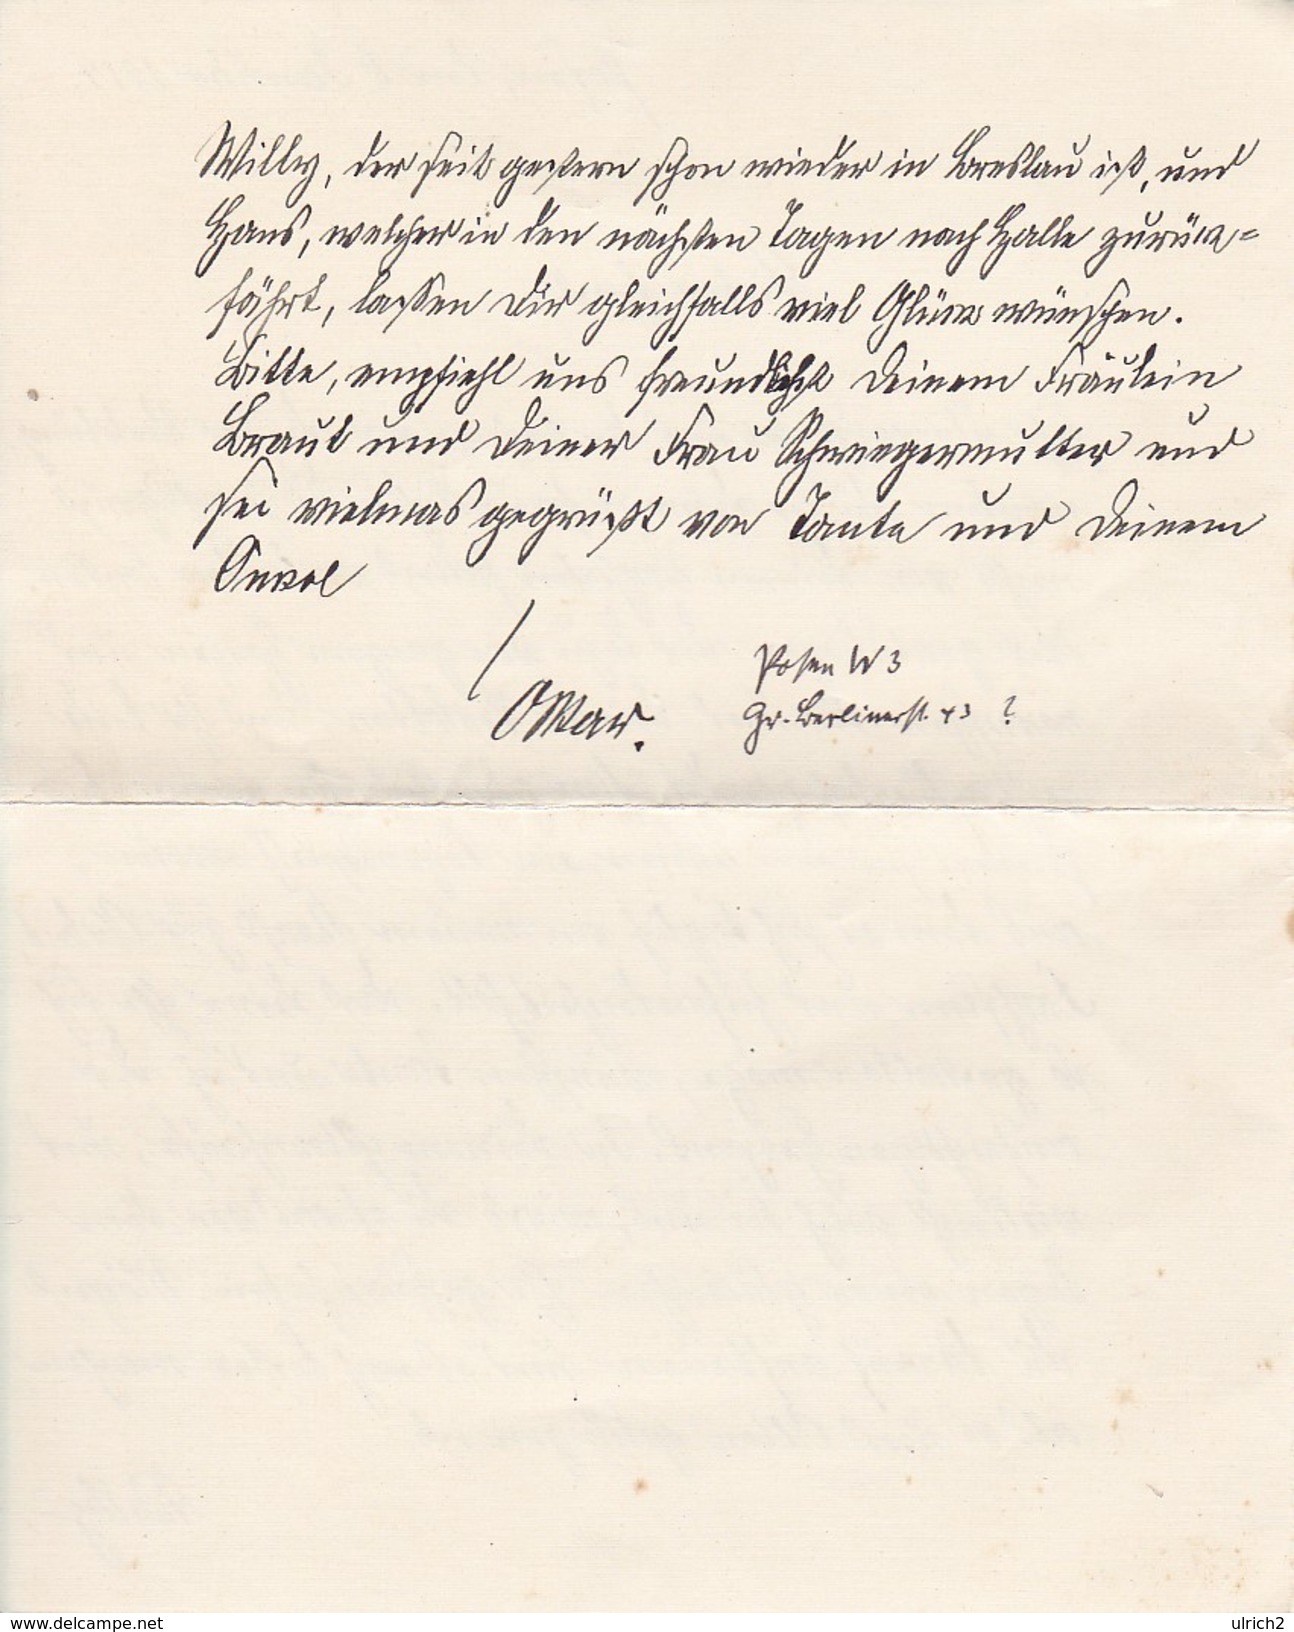 Willy, der seit gestern schon wieder in Breslau ist, und
Hans, welcher in den nächsten Tagen nach Halle zurück=
fährt, lassen Dir gleichfalls viel Glück wünschen.
Bitte, empfiehl uns freundlichst Deinem Fräulein
Braut und Deiner Frau Schwiegermutter und
sei vielmas gegrüßt von Tante und Deinem
Onkel
Oskar.
Posen W 3
Gr. Berlinerst. 43 ?
www.delcampe.net
ulrich2